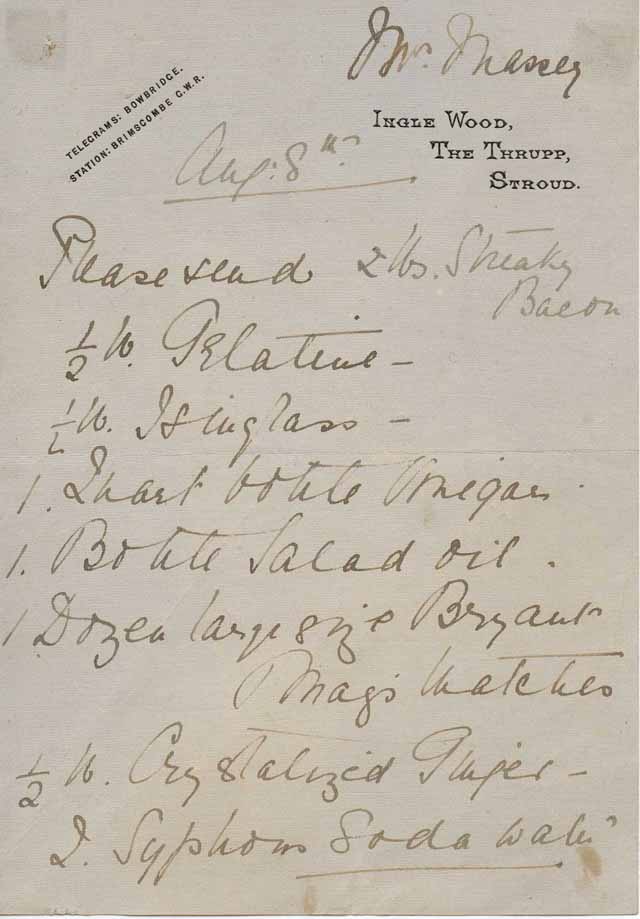 Mrs. Massey
TELEGRAMS: BOWBRIDGE.
STATION: BRIMSCOMBE G.W.R.
INGLE WOOD,
THE THRUPP,
STROUD.
Aug: 8th
Please send 2 lbs. Streaky
Bacon
1/2 lb. Gelatine -
1/2 lb. Isinglass -
1. Quart bottle Vinegar.
1. Bottle Salad oil.
1 Dozen large size Bryant
Mays Matches
1/2 lb. Crystalized Ginger -
2. Syphons Soda water